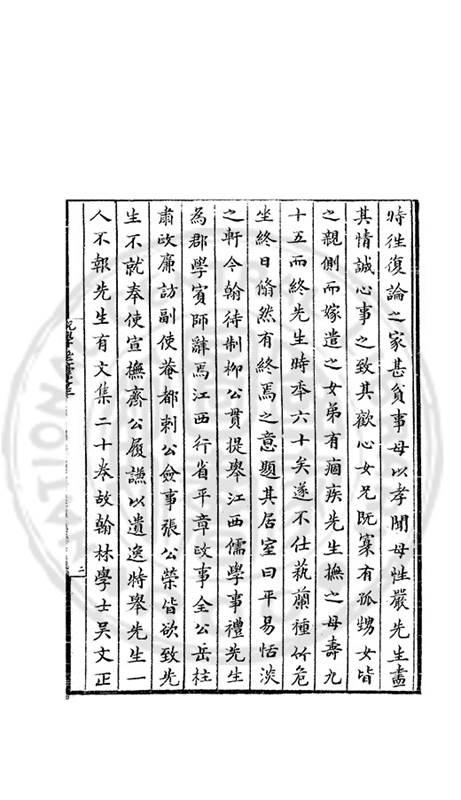 時往復論之家甚貧事母以孝聞母性嚴先生盡
其情誠心事之致其歡心女兄既寡有孤甥女皆
之親側而嫁遣之女弟有痼疾先生撫之母壽九
十五而終先生時年六十矣遂不仕蓺蘭種竹危
坐終日翛然有終焉之意題其居室曰平易恬淡
之軒今翰待制柳公貫提舉江西儒學事禮先生
為郡學賓師辭焉江西行省平章政事全公岳柱
肅政廉訪副使菴都剌公僉事張公榮皆欲致先
生不就奉使宣撫齊公履謙以遺逸特舉先生一
人不報先生有文集二十卷故翰林學士吳文正
二